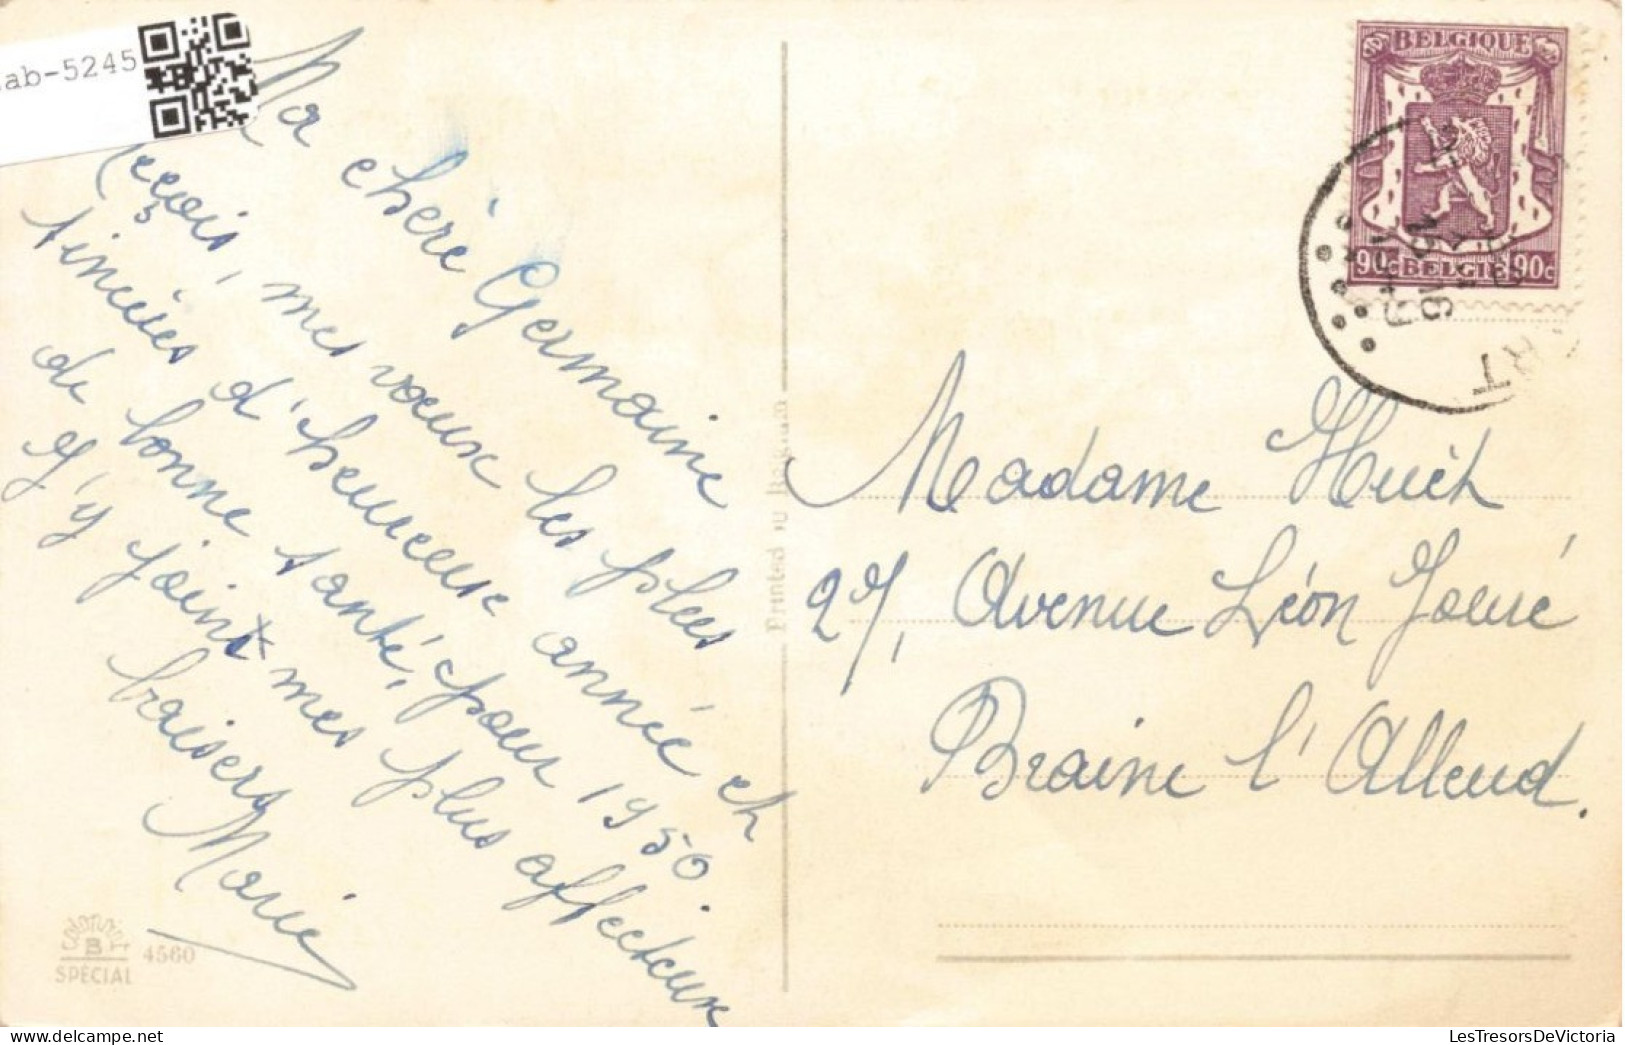 ab-5245
Ma chère Germaine
Reçois, mes vœux les plus
sincères d'heureuse année et
de bonne santé, pour 1950.
J'y joint mes plus affectueux
baisers
Marie
colorvit
B
SPÉCIAL
4560
Printed in Belgium
BELGIQUE
90c BELGIË 90c
RT
Madame Huet
27, Avenue Léon Jouré
Braine l'Alleud.
LesTresorsDeVictoria